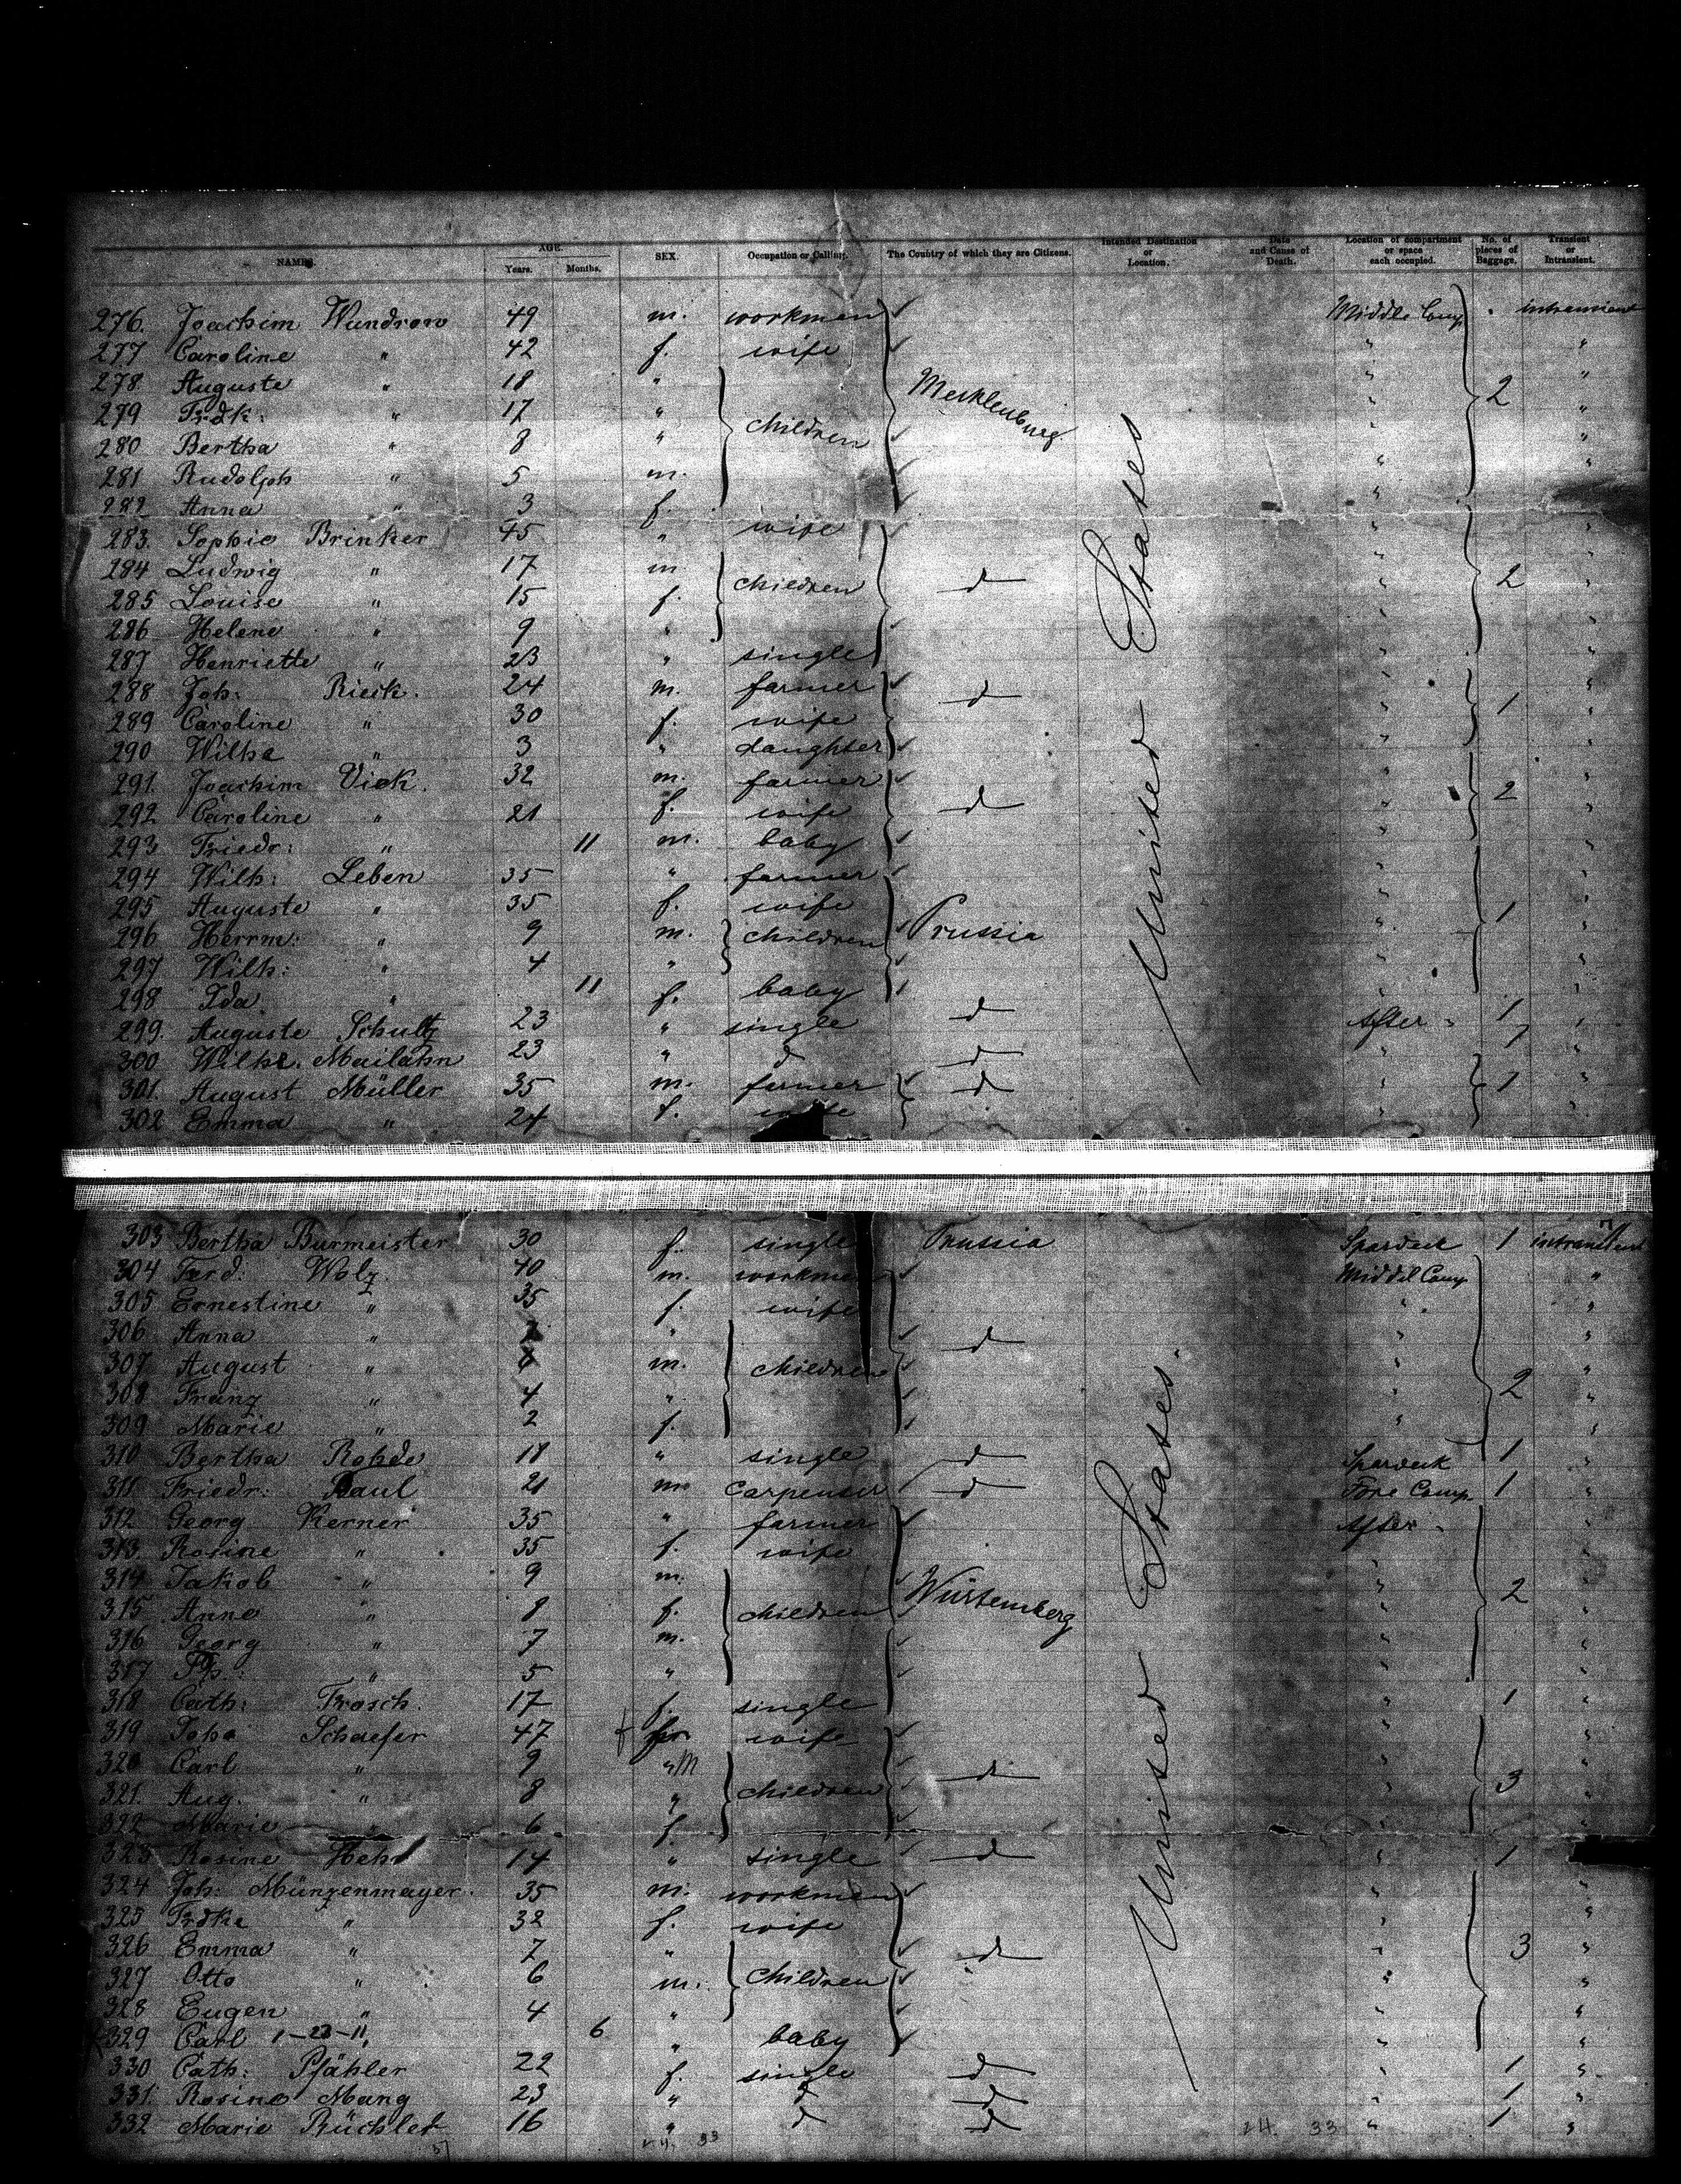 NAMES. AGE. Years. Months. SEX. Occupation or Calling. The Country of which they are Citizens. Intended Destination or Location. Date and Cause of Death. Location of compartment or space each occupied. No. of pieces of Baggage. Transient or Intransient.
276. Joachim Wundrow 49 m. workman Middle Comp intransient
277 Caroline " 42 f. wife " "
278 Auguste " 18 " Mecklenburg " 2 "
279 Frdk: " 17 " children " "
280 Bertha " 8 " "
281 Rudolph " 5 m. " "
282 Anna " 3 f. "
283. Sophie Brinker 45 " wife " "
284 Ludwig " 17 m children d " 2 "
285 Louise " 15 f. " "
286 Helene " 9 " " "
287 Henriette " 23 " single " "
288 Joh: Rieck. 24 m. farmer d " "
289 Caroline " 30 f. wife " 1 "
290 Wilhe " 3 " daughter " "
291. Joachim Vick. 32 m. farmer " "
292 Caroline " 21 f. wife d " 2 "
293 Friedr: " 11 m. baby " "
294 Wilh: Leben 35 " farmer " "
295 Auguste " 35 f. wife " 1 "
296 Herrm: " 9 m. children Prussia " "
297 Wilh: " 4 " " "
298 Ida " 11 f. baby " "
299. Auguste Schultz 23 " single d After " 1 "
300 Wilhe. Mailahn 23 " d d " 1 "
301. August Müller 35 m. farmer d " 1 "
302 Emma " 24 f. wife " "
United States
303 Bertha Burmeister 30 f. single Prussia Spardeck 1 intransient
304 Ferd. Wolz 40 m. workman Middel Comp. "
305 Ernestine " 35 f. wife " "
306 Anna " " d " "
307 August " m. children " "
308 Franz " 4 " " 2 "
309 Marie " 2 f. " "
310 Bertha Rohde 11 " single d Spardeck 1 "
311 Friedr: Paul 21 m. carpenter d Fore Comp. 1 "
312 Georg Kerner 35 " farmer After "
313. Rosine " 35 f. wife "
314 Jakob " 9 m. " 2 "
315 Anne " 8 f. children Würtemberg " "
316 Georg " 7 m. " "
317 " 5 " " "
318 Cath: Frosch. 17 f. single " 1 "
319 Joha Schaefer 47 f wife " "
320 Carl " 9 " M d " "
321. Aug. " 8 " children " 3 "
322 Marie " 6 f. " "
323 Rosine 14 " single d " 1
324 Joh: Münzenmayer. 35 m. workman " "
325 Frdke " 32 f. wife " "
326 Emma " 7 " d " 3 "
327 Otto " 6 m. children " "
328 Eugen " 4 " " "
329 Carl 1-23-11, 6 " baby " "
330 Cath: Pfähler 22 f. single d " 1 "
331. Rosine Mang 23 " d d " 1 "
332 Marie Rüchlet 16 " d d " 1 "
United States.
24. 33